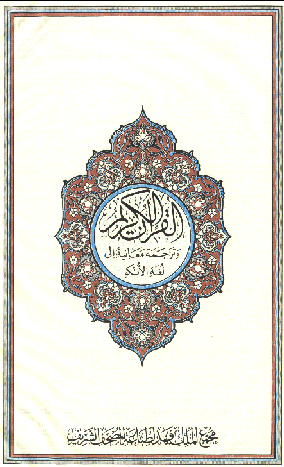 القرآن الكريم
وترجمة معانيه إلى
لغة الأنكو
مجمع الملك فهد لطباعة المصحف الشريف